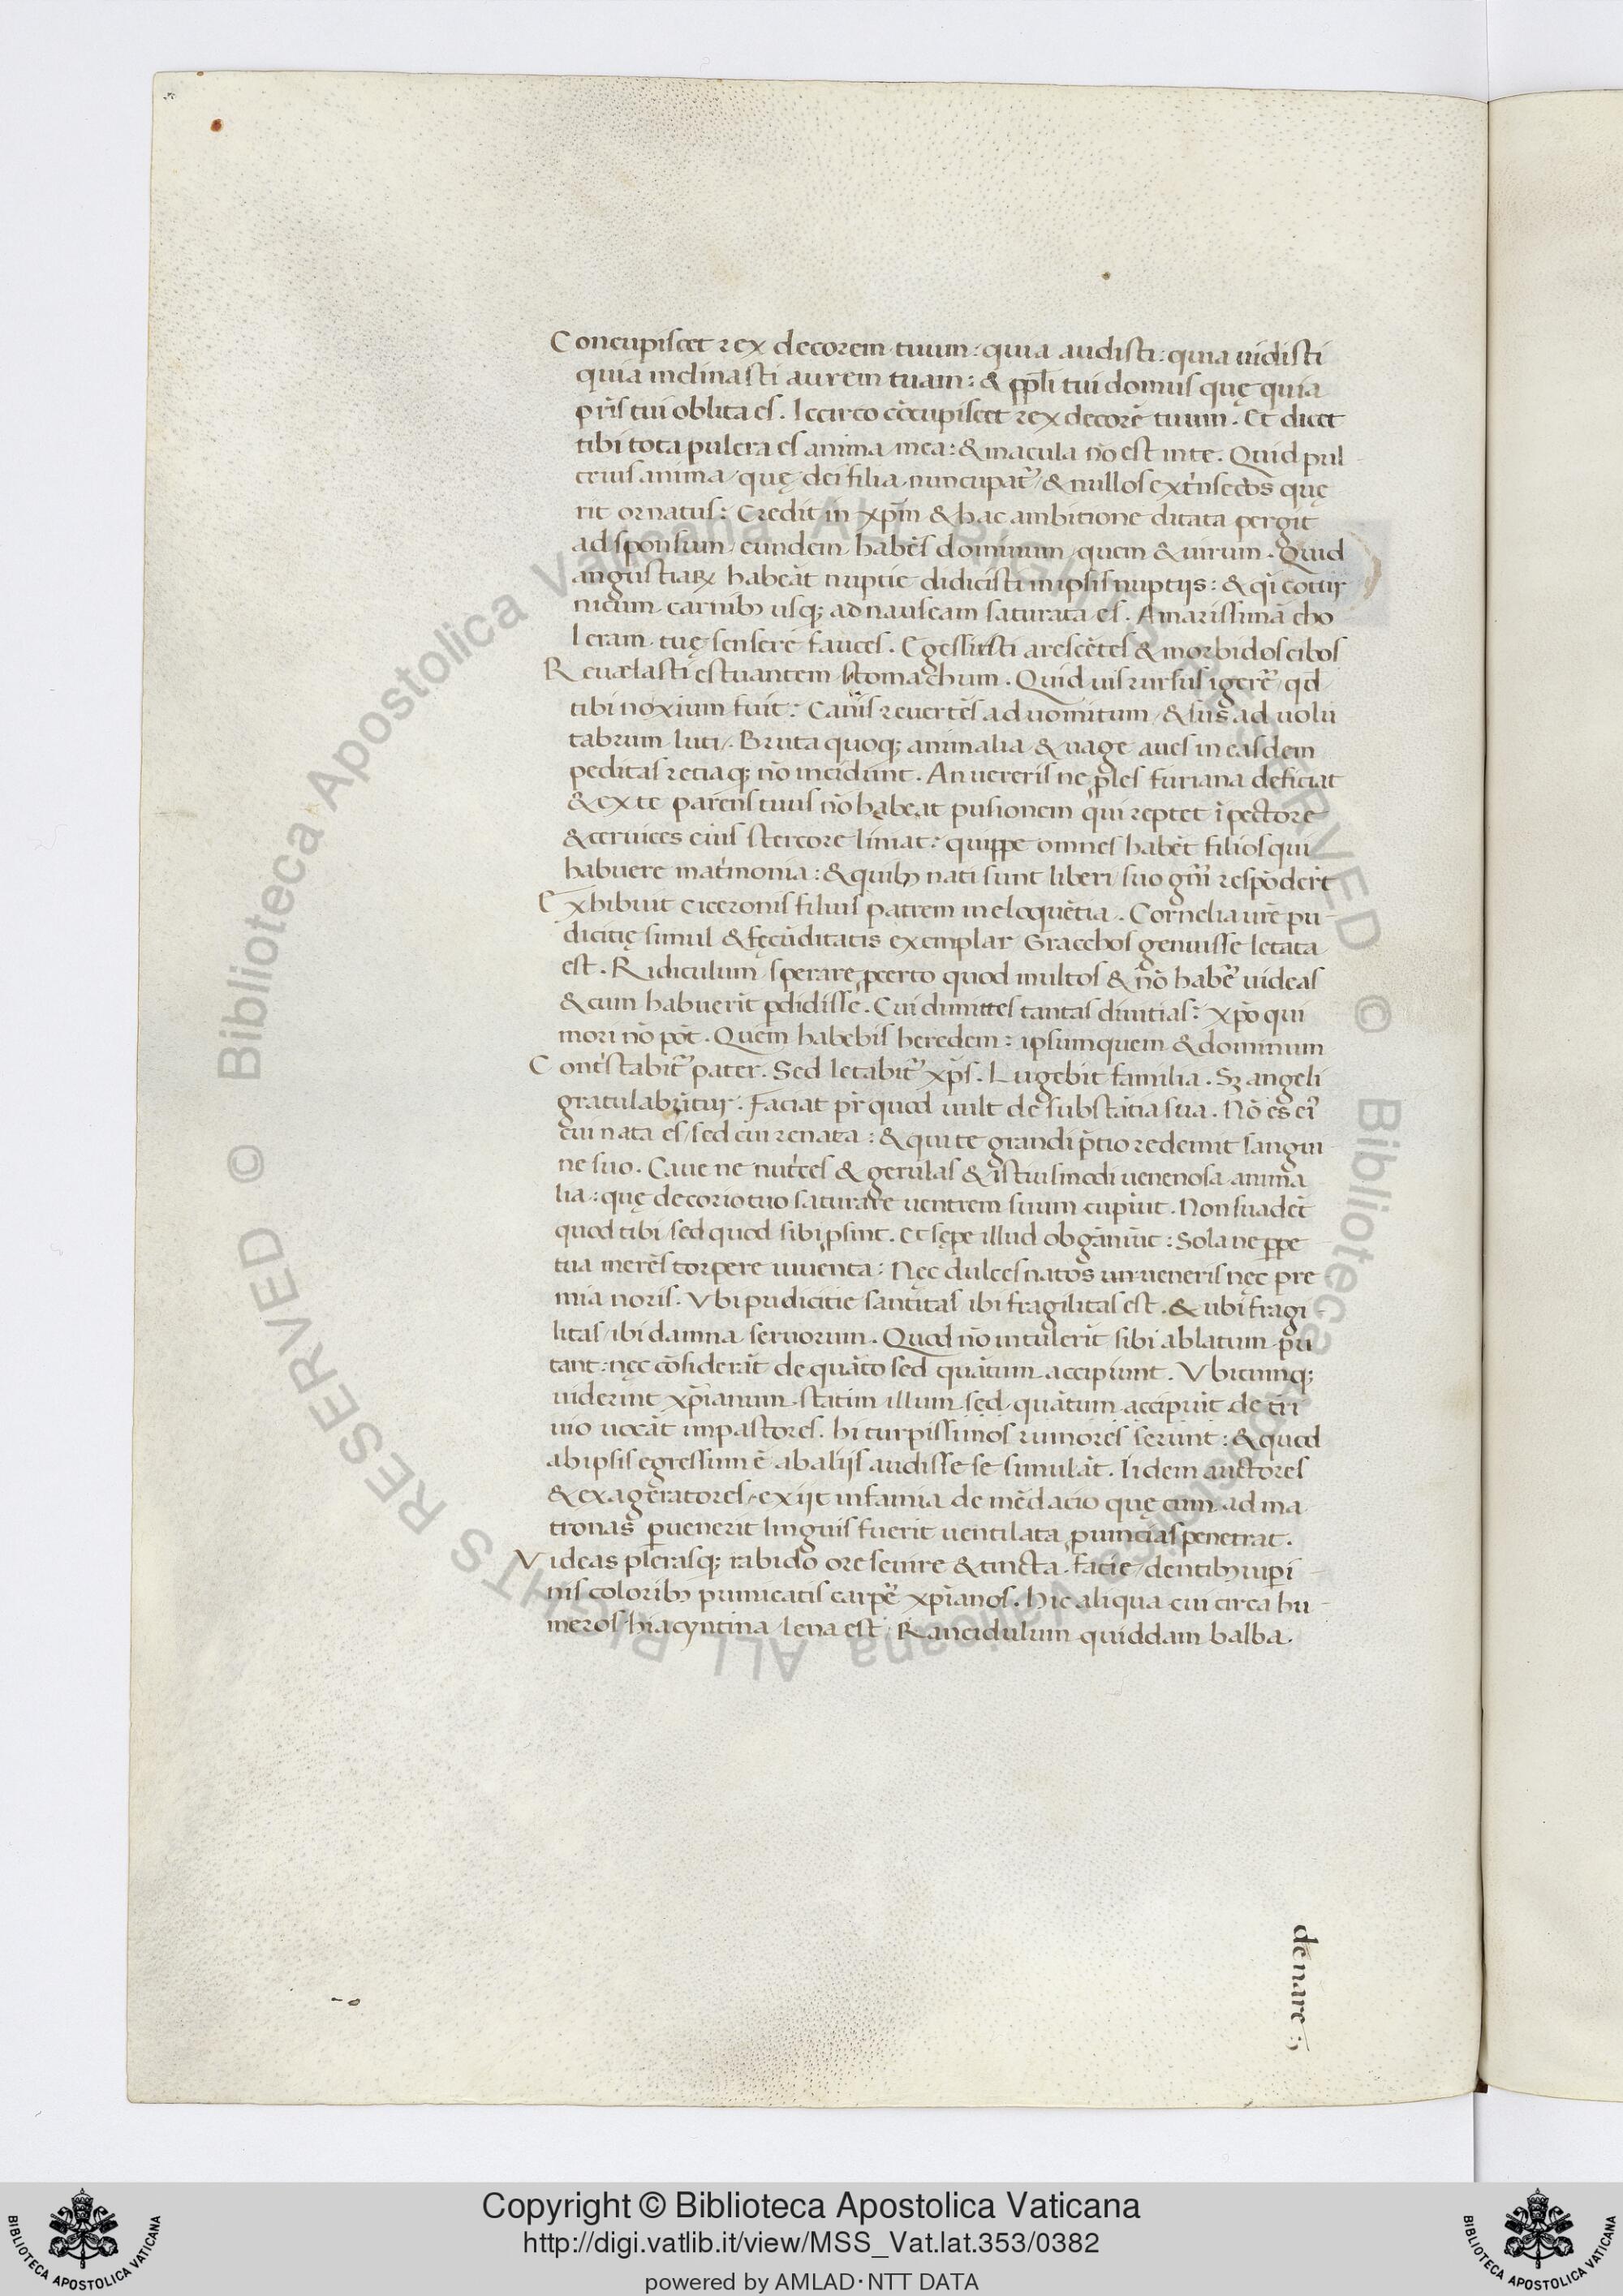 Concupiscet rex decorem tuum: quia audisti: quia uidisti
quia inclinasti aurem tuam: & pp̄li tui domus quę quia
pr̄is tui oblita es. Iccirco cōcupiscet rex decorē tuum. Et dicet
tibi tota pulcra es anima mea: & macula nō est in te. Quid pul
crius anima/ quę dei filia nuncupat᷑/ & nullos ext'nsecos quę
rit ornatus: Credit in xp̄m & hac ambitione ditata pergit
ad sponsum/ eundem habēs dominum/ quem & uirum. Quid
angustiaꝝ habeāt nuptie didicisti in ipsis nuptijs: & qͥ cotur
nicum carnibꝫ usqꝫ ad nauseam saturata es. Amarissimā cho
leram tuę sensere fauces. Egessisti arescētes & morbidos cibos
Reuælasti estuantem stomachum. Quid uis rursus īgere᷑/ qd̄
tibi noxium fuit: Canis reuertēs ad uomitum/ & sus ad uolu
tabrum luti/. Bruta quoqꝫ animalia & uage aues in easdem
peditas retiaqꝫ nō incidunt. An uereris ne ꝓles furiana deficiat
& ex te parens tuus nō habeat pusionem qui reptet ī pectore
& ceruices eius stercore liniat: quippe omnes habēt filios qui
habuere mat'monia: & quibꝫ nati sunt liberi/ suo gn̄i respōdert̄
Exhibuit ciceronis filius patrem in eloquētia. Cornelia ur̄e pu
dicitię simul & fęcūditatis exemplar Gracchos genuisse letata
est. Ridiculum sperare ꝓ certo quod multos & nō habe᷑ uideas
& cum habuerīt ꝑdidisse. Cui dimittes tantas diuitias: xp̄o qui
mori nō pōt. Quem habebis heredem: ipsum quem & dominum
Cont'stabit᷑ pater. Sed letabit᷑ xp̄s. Lugebit familia. Sꝫ angeli
gratulabūtur. Faciat pr̄ quod uult de substātia sua. Nō es eiꝰ
cui nata es/ sed cui renata: & qui te grandi p̄tio redemit sangui
ne suo. Caue ne nut'ces & gerulas & istiusmodi uenenosa anima
lia: quę de corio tuo saturare uentrem suum cupiūt. Non suadēt
quod tibi sed quod sibi ꝓsint. Et sępe illud obgāniūt: Sola ne ꝑpe
tua merēs torpere iuuenta: Nęc dulces natos un ueneris nęc pre
mia noris. Vbi pudicitie santitas ibi fragilitas est. & ubi fragi
litas/ ibi damna seruorum. Quod nō intulerīt sibi ablatum pu
tant: nęc cōsiderāt de quāto sed quātum accipiunt. Vbicunqꝫ
uiderint xp̄ianum statim illum sed quātum accipiūt de tri
uio uocāt impastores. hi turpissimos rumores serunt: & quod
ab ipsis egressum ē ab alijs audisse se simulāt. Iidem auctores
& exageratores/ exijt infamia de mēdacio quę cum ad ma
tronas ꝑuenerit linguis fuerit uentilata ꝓuincias penetrat.
Videas plerasqꝫ rabido ore seuire & tincta facie/ dentibꝫ uiꝑi
nis coloribꝫ pumicatis carpe᷑ xp̄ianos. Hic aliqua cui circa hu
meros hiacyntina lena est Rancidulum quiddam balba.
de nare:
Copyright © Biblioteca Apostolica Vaticana
http://digi.vatlib.it/view/MSS_Vat.lat.353/0382
powered by AMLAD·NTT DATA
BIBLIOTECA APOSTOLICA VATICANA
BIBLIOTECA APOSTOLICA VATICANA
© Biblioteca Apostolica Vaticana ALL RIGHTS RESERVED
© Biblioteca Apostolica Vaticana ALL RIGHTS RESERVED